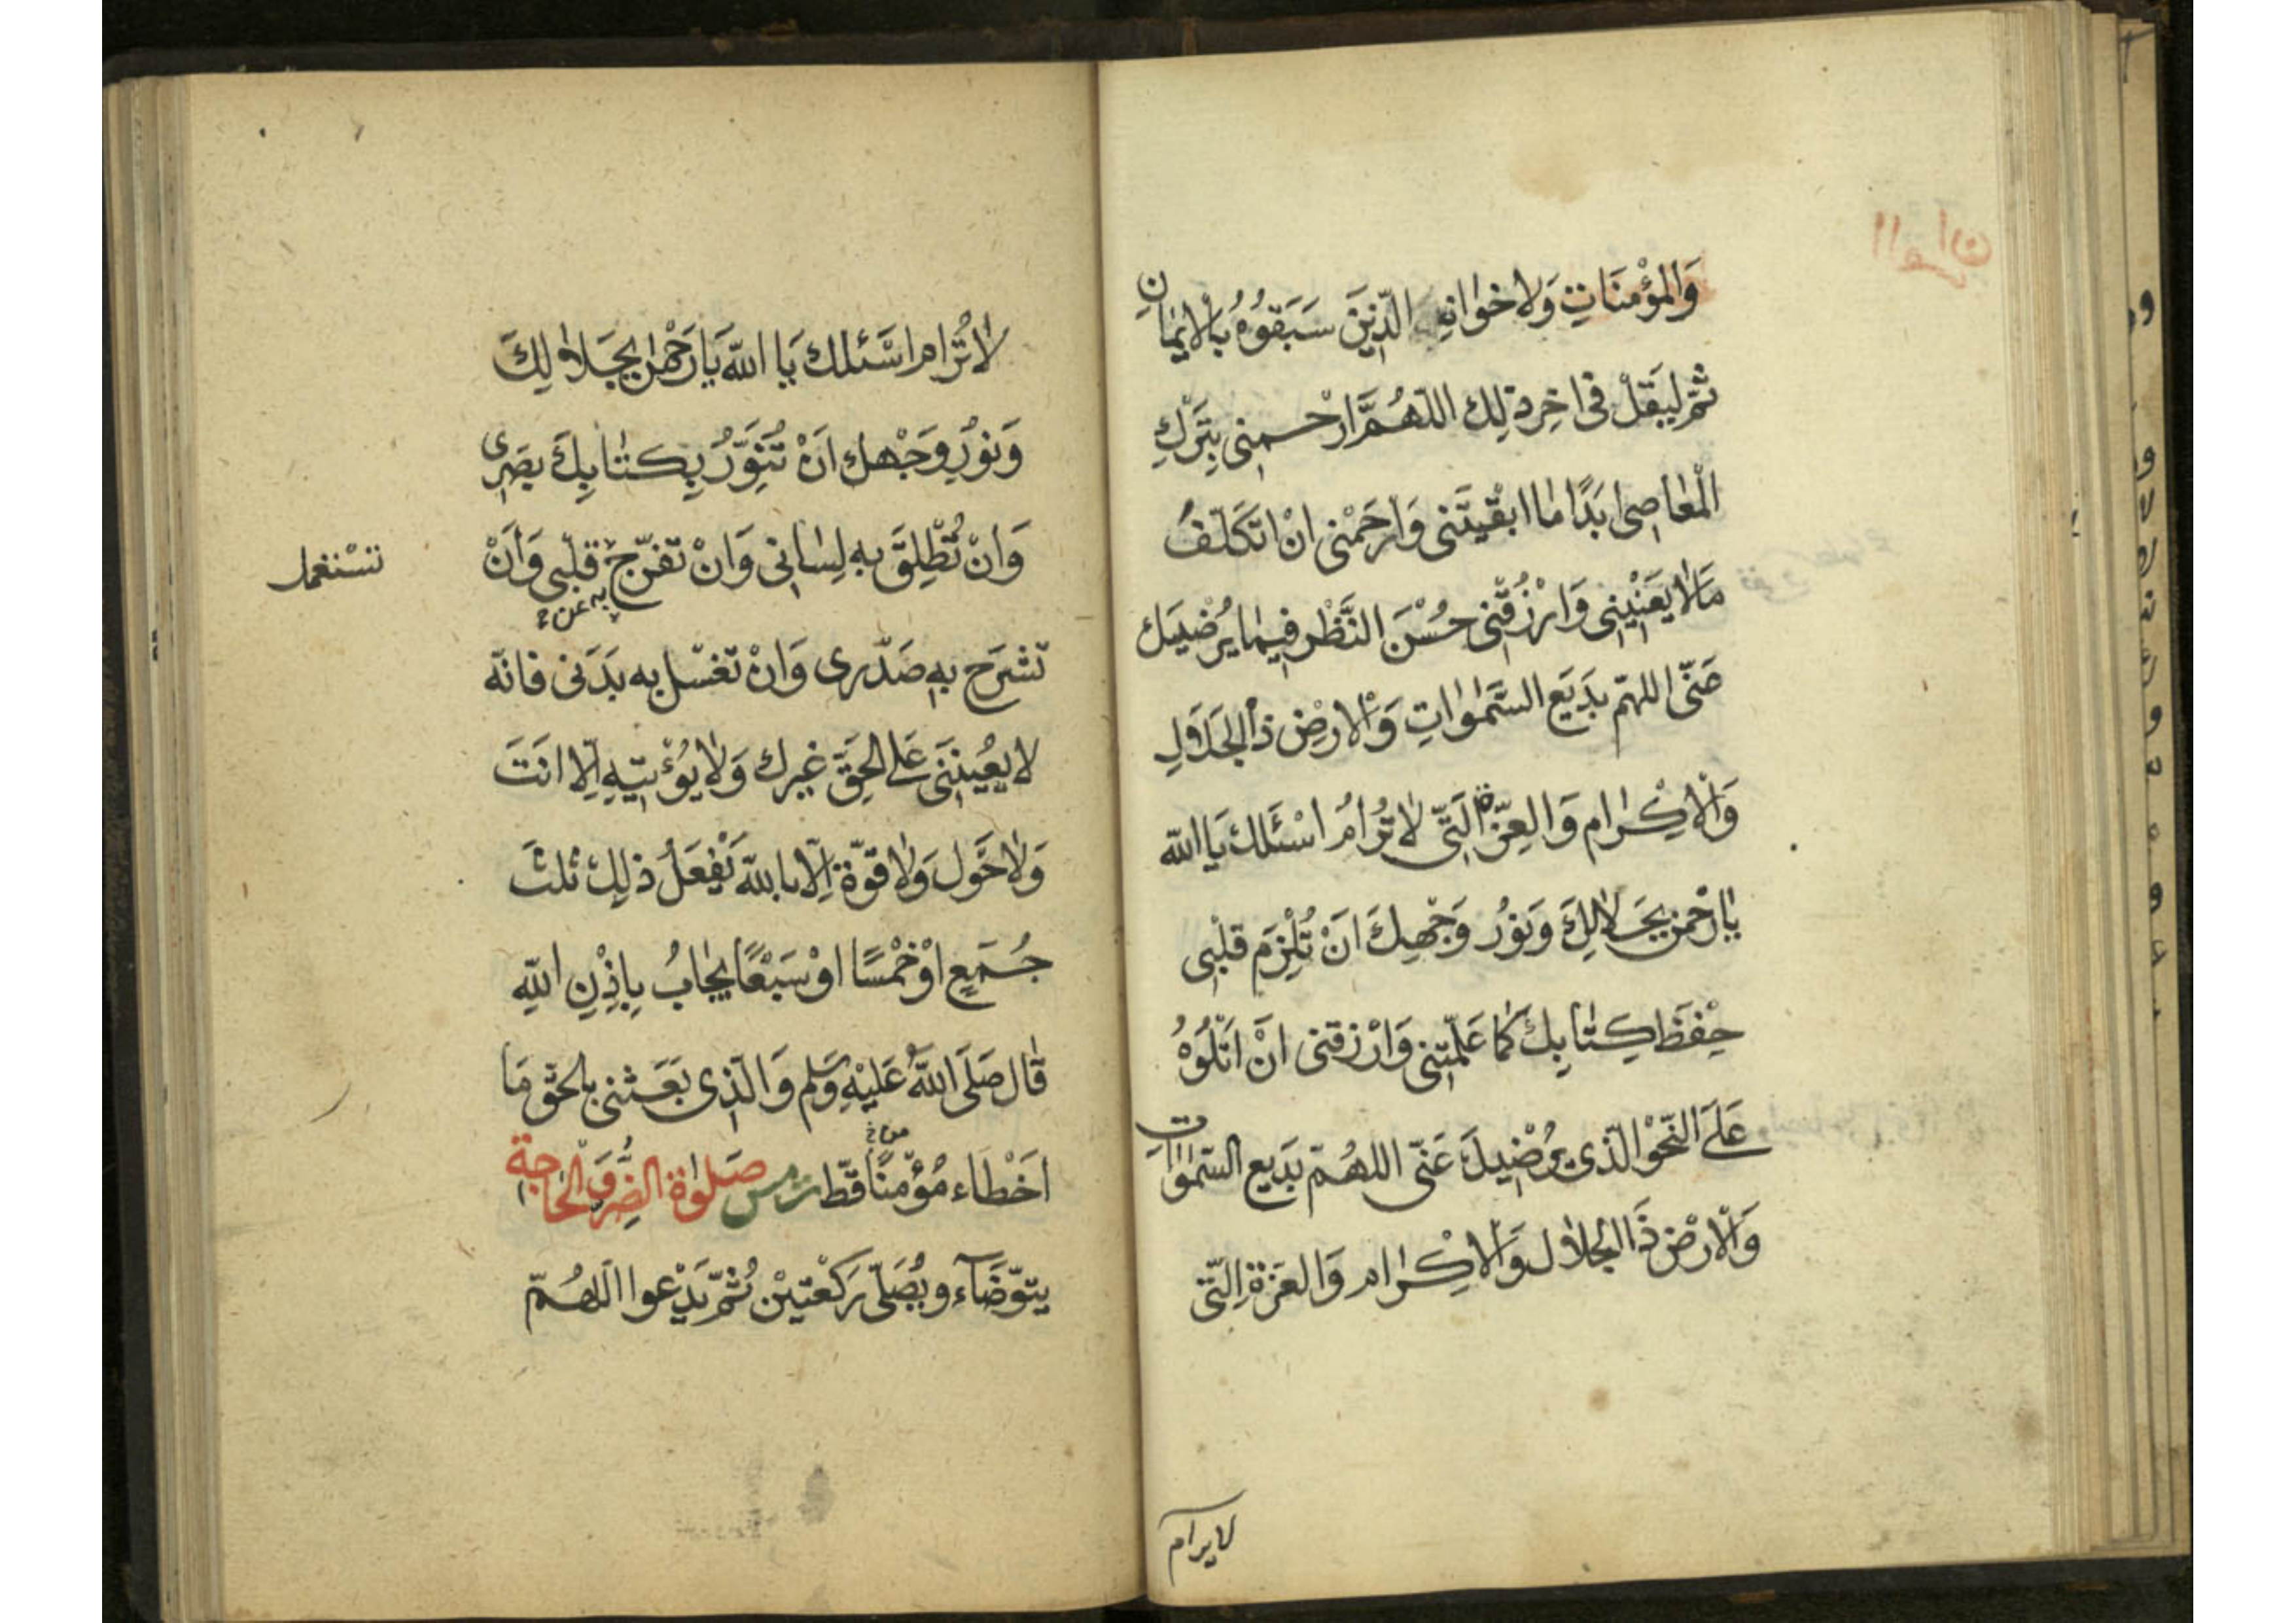 وَالمؤْمنَاتِ وَلاخوَانِهِ الّذِينَ سَبَقوُهُ بالْايمٰانِ
ثمّ ليَقلْ فى اخِرِ ذلِك اللّهُمَّ ارْحمنِى بِتَرْكِ
الْمَعٰاصِى ابَدًا مٰا ابقَيْتَنى وَارْحَمْنى انْ اتكَلّفُ
مَالٰا يَعْنِيْنِى وَارْزُقْنِى حُسْنَ النَّظْرِ فِيمٰا يُرْضِيَك
عَنّى اللهمّ بدَيعَ السَّمٰوٰاتِ وَالْارضِ ذَا الجَلَالِ
وَالْاكْرٰام وَالعِزّةِ الَتِّى لٰا تُرٰامُ اسْئَلك يَا اللّه
يٰا رَحْمٰن بِجَلٰالِكَ وَنوُرِ وَجْهِكَ انْ تُلْزِمَ قلْبِى
حِفْظَ كِتٰابِكَ كَمٰا عَلّمْتَنِى وَارْزقنى انْ اتْلُوَهُ
عَلَى النّحْوِ الّذى يُرْضِيكَ عَنّى اللهُمّ بدَيع السّمٰوٰاتِ
وَالْارْض ذَا الجلاٰل وَالْاكِرٰام وَالعِزّةِ الّتِى
لا يرام
لاٰ تُرَام اسْئلك يَا اللّه يَا رَحْمٰن بِجَلاٰلِكَ
وَنوُرِ وَجْهك انْ تُنَوِّرُ بِكتٰابِكَ بصَرِى
وَانْ تُطْلِقَ بهِ لِسٰانِى وَانْ تفرّج قلْبِى وَانْ
به عن
تستعمل
تشرَح بهِ صَدْرى وَانْ تغسْل به بَدَنى فانّه
لا يُعِينُنِى عَلى الحَقّ غيرك وَلاٰ يُؤْتِيهِ اِلّا انتَ
وَلٰا حَوْل وَلٰا قوّة اِلّا بالله تَفْعَلُ ذلِك ثلثَ
جُمَعٍ اوْ خَمْسًا اوْ سَبْعًا يجٰابُ بِاِذْنِ اللّهِ
قٰال صَلّى اللّهُ عَليْهِ وَسَلم وَالّذِى بَعَثنى بالحقّ مَا
اخْطَاء مُؤْمنًا قطّ ت مس صَلوٰة الضِّرّ وَالْحاجة
من خ
يتوّضَآء ويُصَلّى رَكعْتيْن ثُمّ يَدْعوا اللهُمّ